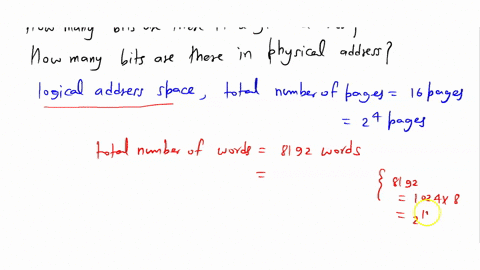 How many bits are there in physical address?
logical address space, total number of pages = 16 pages
= 2⁴ pages
total number of words = 8192 words
=
{ 8192
= 1024 x 8
= 2¹